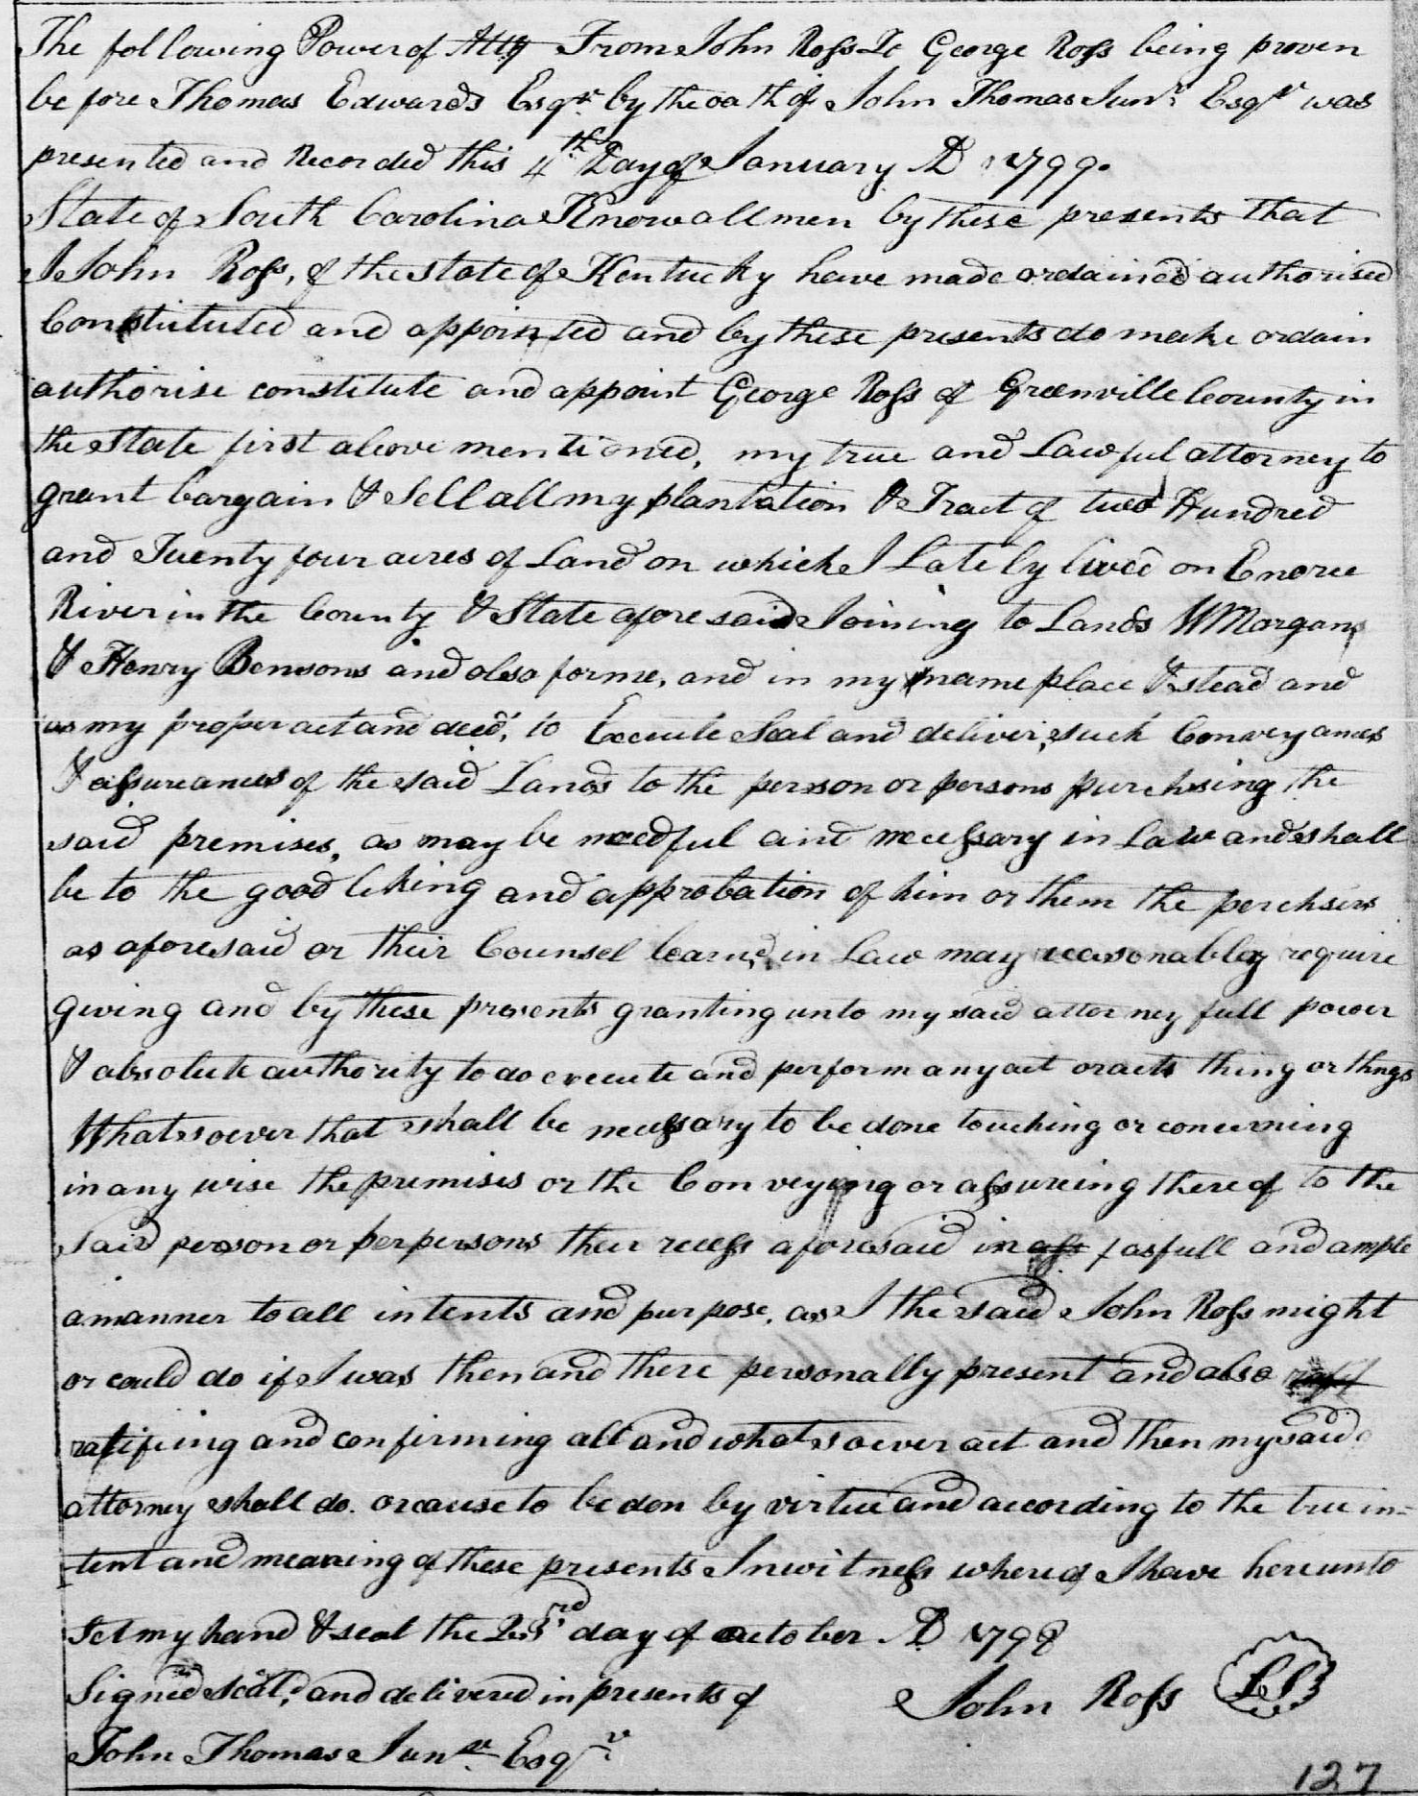 The following Power of Atty From John Ross To George Ross being proven
before Thomas Edwards Esqr. by the oath of John Thomas Junr. Esqr was
presented and Recorded this 4th Day of January AD 1799.
State of South Carolina Know all men by these presents that
I John Ross, of the state of Kentucky have made ordained authorised
Constituted and appointed and by these presents do make ordain
authorise constitute and appoint George Ross of Greenville County in
the State first above mentioned, my true and Lawful attorney to
grant bargain & Sell all my plantation & Tract of two Hundred
and Twenty four acres of Land on which I Lately lived on Enoree
River in the County & State aforesaid Joining to Lands Wm Morgans
& Henry Bensons and also for me, and in my name place & stead and
as my proper act and deed, to Execute Seal and deliver, such Conveyances
& assureances of the said Lands to the person or persons purchsing the
said premises, as may be needful and necessary in Law and shall
be to the good likeing and approbation of him or them the perchsers
as aforesaid or their Counsel learned, in Law may reasonabley require
giving and by these presents granting unto my said attorney full power
& absolute authority to do execute and perform any act or acts thing or thngs
Whatsoever that shall be necessary to be done touching or concerning
in any wise the premises or the Conveying or assureing there of to the
said person or perpersons their recess aforesaid in as full and ample
a manner to all intents and purpose, as I the said John Ross might
or could do if I was then and there personally present and also
ratifiing and confirming all and whatsoever act and then my said
attorney shall do. or cause to be don by virtue and according to the true in=
=tent and meaning of these presents In witness where of I have hereunto
Set my hand & seal the 23rd day of october AD 1798
Signed Seal,d and delivered in presents of John Ross LS
John Thomas Junr. Esqr.
127